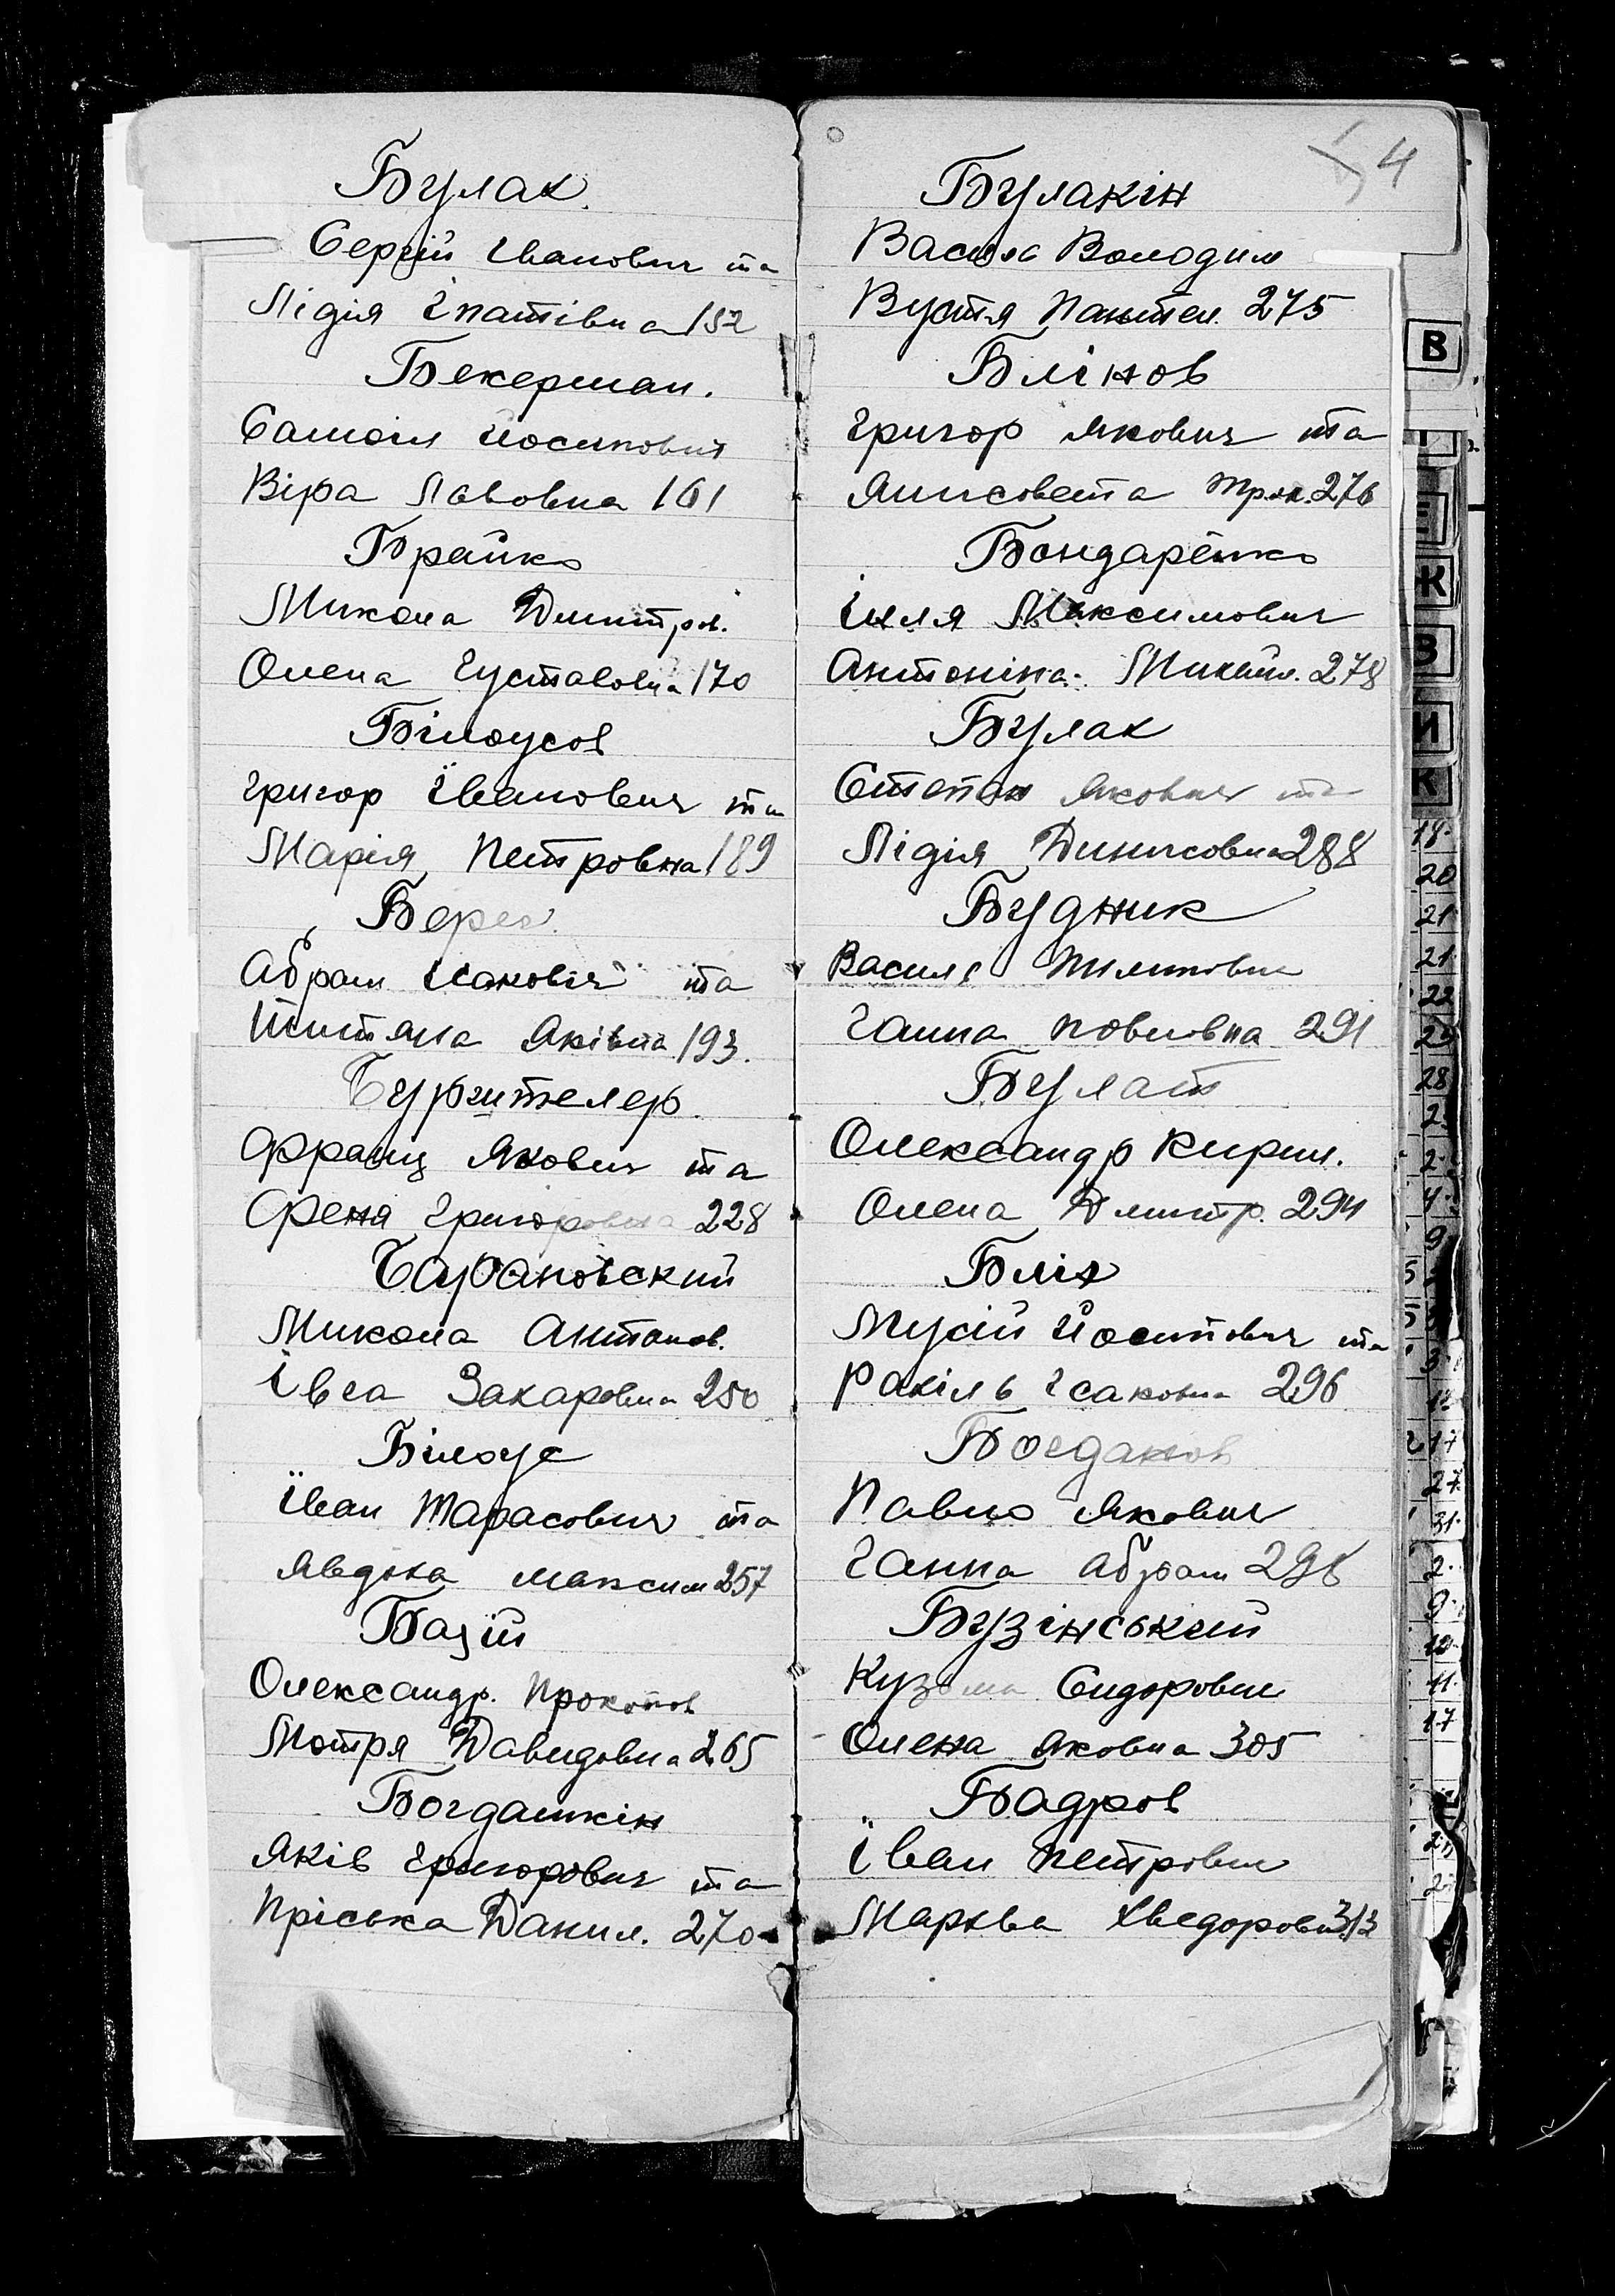 Булах
Сергій Іванович та
Лідія Іпатівна 152
Бекерман.
Самоіл Йосипович
Віра Львовна 161
Брайко
Микола Дмитров.
Олена Густавовна 170
Білоусов
Григор Іванович та
Марія Петровна 189
Берег.
Абрам Ісакович та
Титяна Яківна 193.
Бургителер.
Франц Якович та
Френя Григоровна 228
Барановский
Микола Антонов.
Івга Захаровна 250
Білоус
Іван Тарасович та
Явдоха Максим 257
Бацій
Олександр. Прокопов
Мотря Давидовна 265
Богдашкін
Яків Григорович та
Пріська Данил. 270
4
Булакін
Василь Володим
Вустя Пантел. 275
Блінов
Григор Якович та
Янисовета Трох. 276
Бондаренко
Ілля Максимович
Антоніна Михайл. 278
Булах
Степан Якович та
Лідія Динисовна 288
Будник
Василь Пилипович
Ганна Повловна 291
Булат
Олександр Кирил.
Олена Дмитр. 294
Бліх
Мусій Йосипович та
Рахіль Ісаковна 296
Богданов
Павло Якович
Ганна Абрам 298
Бузінський
Кузьма Сидорович
Олена Яковна 305
Бадров
Іван Петрович
Мархва Хведоровн 313
В
К
З
И
К